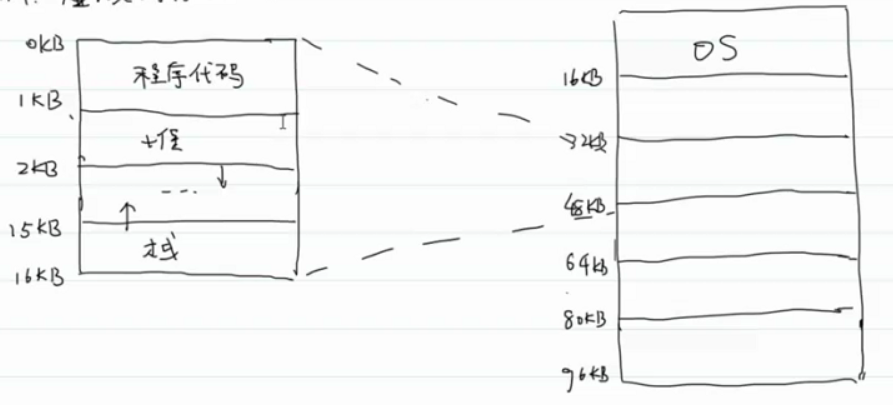 0KB
程序代码
1KB
堆
2KB
...
15KB
栈
16KB
OS
16KB
32KB
48KB
64KB
80KB
96KB